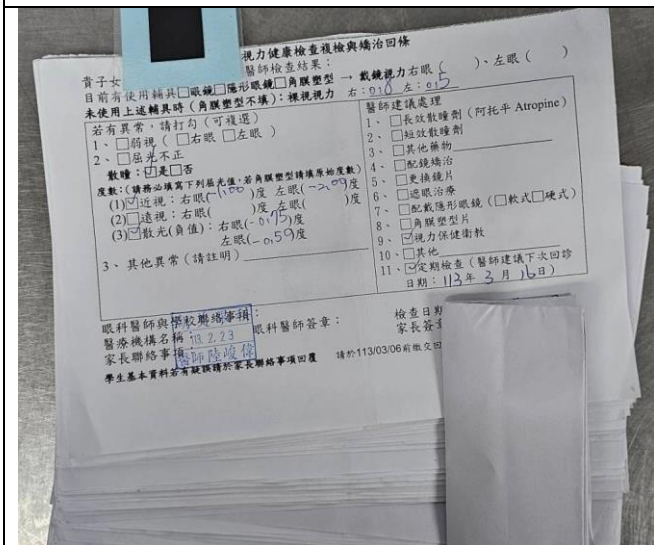 視力健康檢查複檢與矯治回條
貴子女
醫師檢查結果：
目前有使用輔具□眼鏡□隱形眼鏡□角膜塑型 → 戴鏡視力右眼（　）、左眼（　）
未使用上述輔具時（角膜塑型不填）：裸視視力 右：0.8 左：0.5
若有異常，請打勾（可複選）
1、□弱視（□右眼□左眼）
2、□屈光不正
散瞳：☑是□否
度數：（請務必填寫下列屈光值，若角膜塑型請填原始度數）
(1)☑近視：右眼(-1.00)度 左眼(-2.00)度
(2)□遠視：右眼(　)度 左眼(　)度
(3)☑散光(負值)：右眼(-0.75)度
左眼(-0.50)度
3、其他異常（請註明）
醫師建議處理
1、□長效散瞳劑（阿托平 Atropine）
2、□短效散瞳劑
3、□其他藥物
4、□配鏡矯治
5、□更換鏡片
6、□遮眼治療
7、□配戴隱形眼鏡（□軟式□硬式）
8、□角膜塑型片
9、☑視力保健衛教
10、□其他
11、☑定期檢查（醫師建議下次回診
日期：113年3月16日）
眼科醫師與學校聯絡事項：
醫療機構名稱：
113.2.23
眼科醫師簽章：
檢查日期
家長聯絡事項：
醫師陸峻偉
家長簽章
學生基本資料若有疑誤請於家長聯絡事項回覆
請於113/03/06前繳交回